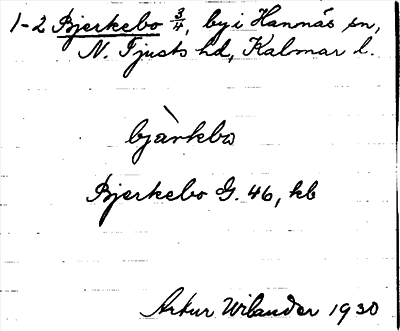 1-2 Bjerkebo 3/4, by i Hannäs sn,
N. Tjusts hd, Kalmar l.
bjärkbo
Bjerkebo G. 46, kb
Artur Wilander 1930